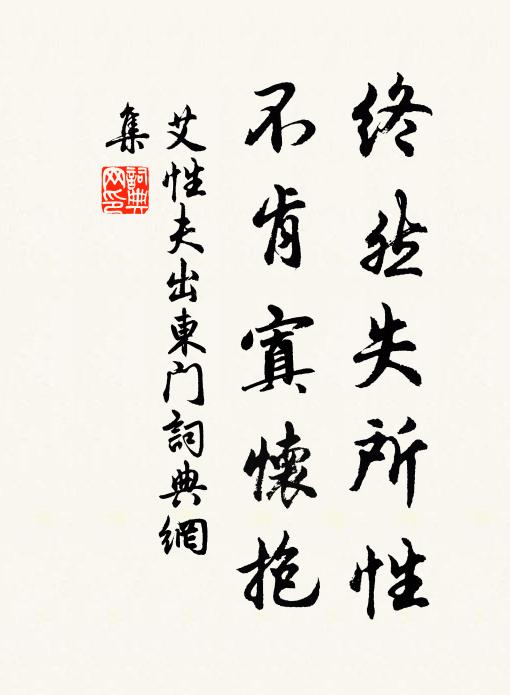 終然失所性
不肯寘懷抱
艾性夫出東門詞典網
集
詞典
网印